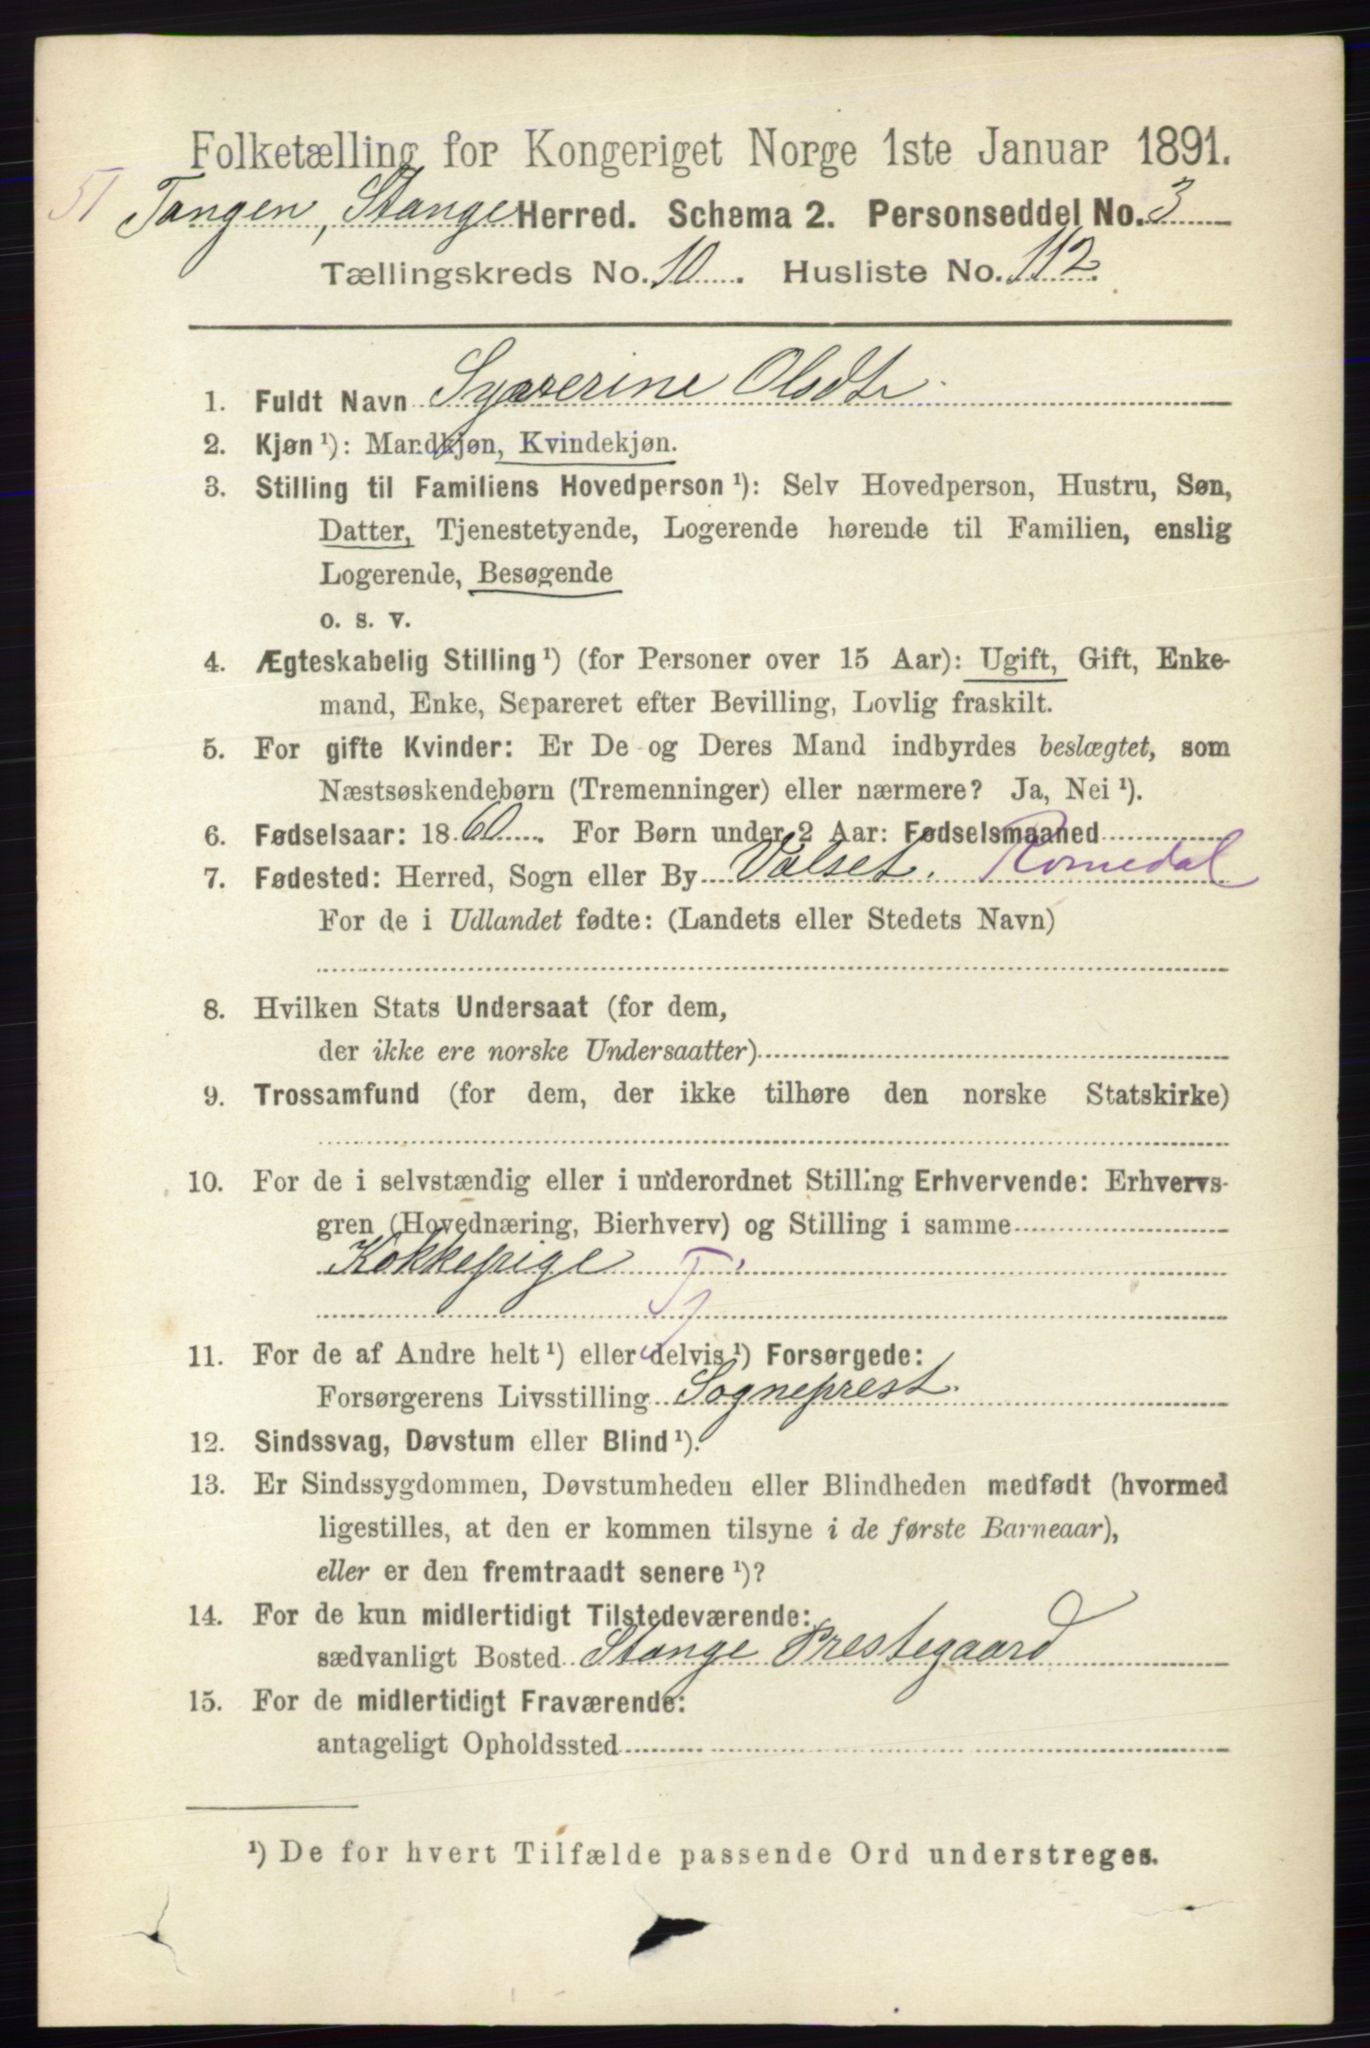 Folketælling for Kongeriget Norge 1ste Januar 1891.
51 Tangen, Stange Herred. Schema 2. Personseddel No. 3
Tællingskreds No. 10. Husliste No. 112.
1. Fuldt Navn Syverine Olsdt.
2. Kjøn ¹): Mandkjøn, Kvindekjøn.
3. Stilling til Familiens Hovedperson ¹): Selv Hovedperson, Hustru, Søn,
Datter, Tjenestetyende, Logerende hørende til Familien, enslig
Logerende, Besøgende
o. s. v.
4. Ægteskabelig Stilling ¹) (for Personer over 15 Aar): Ugift, Gift, Enke-
mand, Enke, Separeret efter Bevilling, Lovlig fraskilt.
5. For gifte Kvinder: Er De og Deres Mand indbyrdes beslægtet, som
Næstsøskendebørn (Tremenninger) eller nærmere? Ja, Nei ¹).
6. Fødselsaar: 1860. For Børn under 2 Aar: Fødselsmaaned
7. Fødested: Herred, Sogn eller By Valset. Romedal
For de i Udlandet fødte: (Landets eller Stedets Navn)
8. Hvilken Stats Undersaat (for dem,
der ikke ere norske Undersaatter)
9. Trossamfund (for dem, der ikke tilhøre den norske Statskirke)
10. For de i selvstændig eller i underordnet Stilling Erhvervende: Erhvervs-
gren (Hovednæring, Bierhverv) og Stilling i samme
Kokkepige Tj
11. For de af Andre helt ¹) eller delvis ¹) Forsørgede:
Forsørgerens Livsstilling Sogneprest.
12. Sindssvag, Døvstum eller Blind ¹).
13. Er Sindssygdommen, Døvstumheden eller Blindheden medfødt (hvormed
ligestilles, at den er kommen tilsyne i de første Barneaar),
eller er den fremtraadt senere ¹)?
14. For de kun midlertidigt Tilstedeværende:
sædvanligt Bosted Stange Prestegaard
15. For de midlertidigt Fraværende:
antageligt Opholdssted
¹) De for hvert Tilfælde passende Ord understreges.